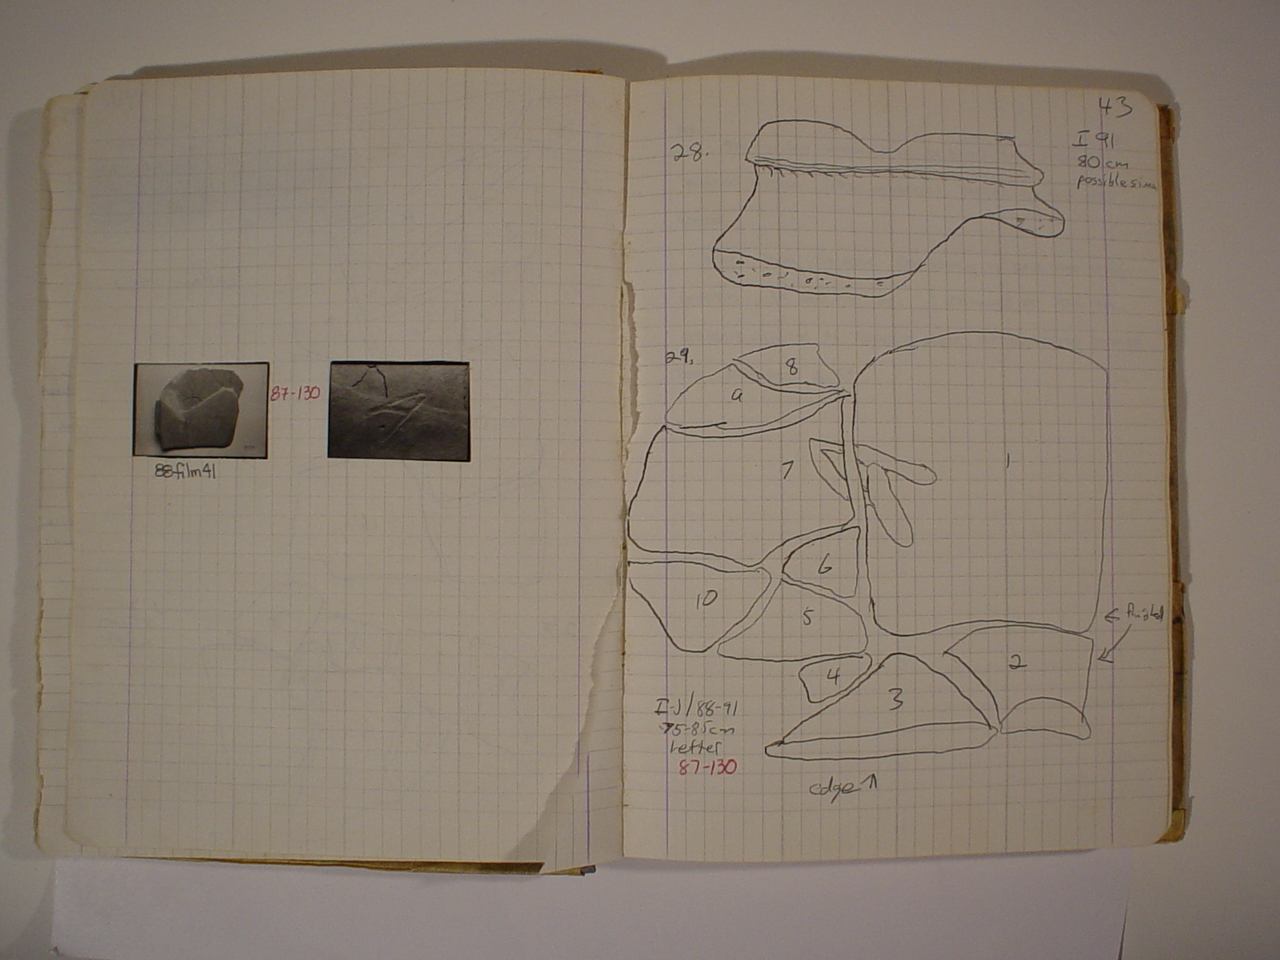 87-130
88-film41
43
28.
I 91
80 cm
possible
29.
8
9
7
1
6
10
5
4
3
2
← finished
I-J/88-91
75-85cm
Letter
87-130
edge ↑